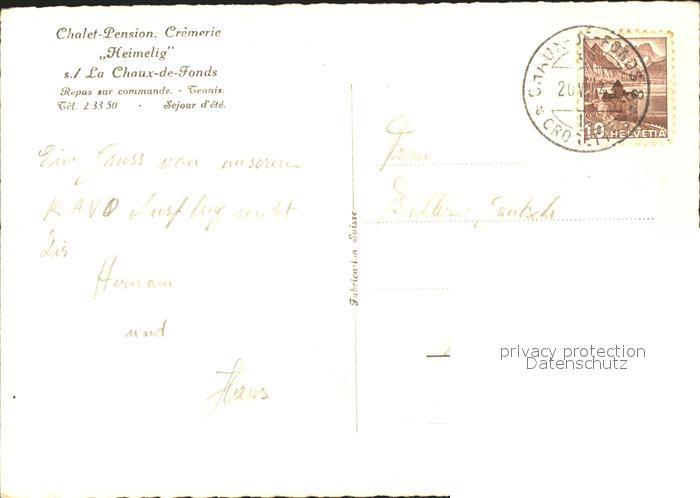 Chalet-Pension. Crèmerie
„Heimelig"
s./ La Chaux-de-Fonds
Repas sur commande. - Tennis.
Tél. 2 33 50 - Sejour d'été.
CHAUX-DE-FONDS
20.VI
10 HELVETIA
Ein Gruss von unserem
KAVO Ausflug sendet
Dir
Hermann
und
Hans
Frau
Fabrication Suisse
privacy protection
Datenschutz